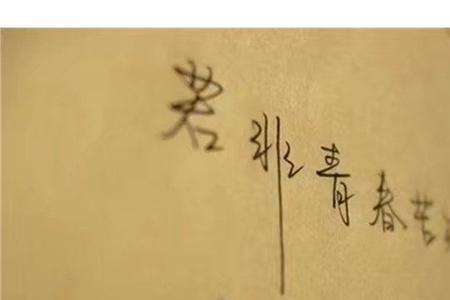 若非青春苦